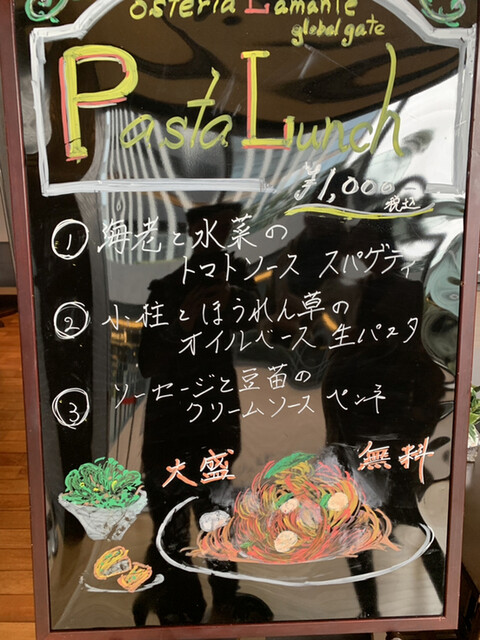 osteria Lamante
global gate
Pasta Lunch
¥1,000-
税込
① 海老と水菜の
トマトソース スパゲティ
② 小柱とほうれん草の
オイルベース 生パスタ
③ ソーセージと豆苗の
クリームソース ペンネ
大盛 無料